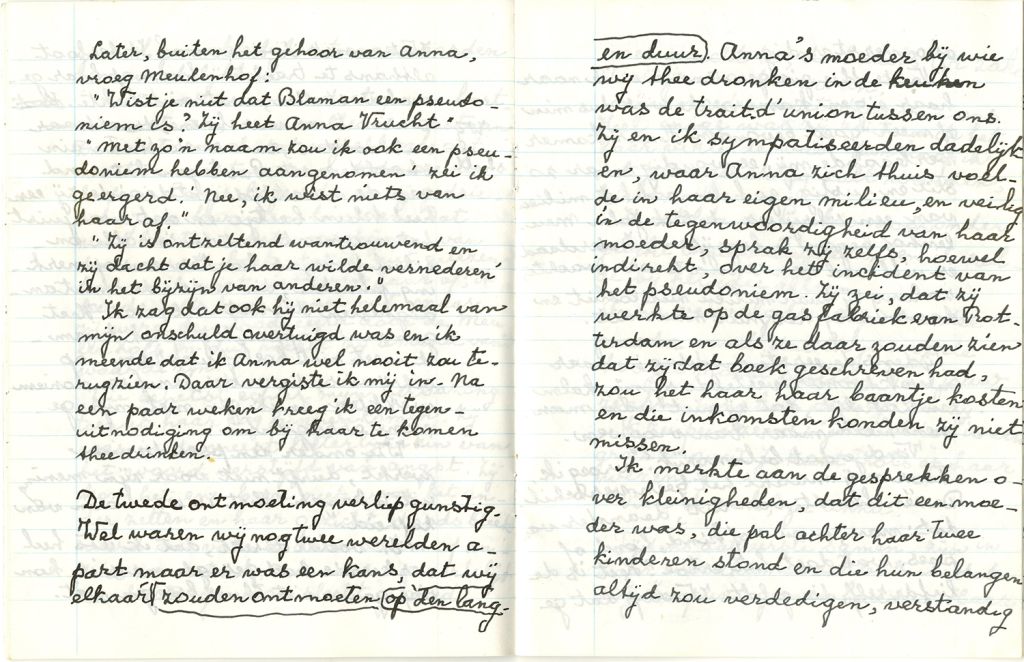 Later, buiten het gehoor van Anna,
vroeg Meulenhof:
"Wist je niet dat Blaman een pseudo-
niem is? Zij heet Anna Vrucht"
"Met zo'n naam zou ik ook een pseu-
doniem hebben aangenomen' zei ik
geërgerd.' Nee, ik wist niets van
haar af."
"Zij is ontzettend wantrouwend en
zij dacht dat je haar wilde vernederen'
in het bijzijn van anderen."
Ik zag dat ook hij niet helemaal van
mijn onschuld overtuigd was en ik
meende dat ik Anna wel nooit zou te-
rugzien. Daar vergiste ik mij in. Na
een paar weken kreeg ik een tegen-
uitnodiging om bij haar te komen
theedrinken.
De twede ontmoeting verliep gunstig.
Wel waren wij nog twee werelden a-
part maar er was een kans, dat wij
elkaar zouden ontmoeten op den lang-
en duur. Anna's moeder bij wie
wij thee dronken in de keuken
was de trait d'union tussen ons.
Zij en ik sympatiseerden dadelijk
en, waar Anna zich thuis voel-
de in haar eigen milieu, en veilig
in de tegenwoordigheid van haar
moeder, sprak zij zelfs, hoewel
indirekt, over het incident van
het pseudoniem. Zij zei, dat zij
werkte op de gasfabriek van Rot-
terdam en als ze daar zouden zien
dat zij dat boek geschreven had,
zou het haar haar baantje kosten
en die inkomsten konden zij niet
missen.
Ik merkte aan de gesprekken o-
ver kleinigheden, dat dit een moe-
der was, die pal achter haar twee
kinderen stond en die hun belangen
altijd zou verdedigen, verstandig